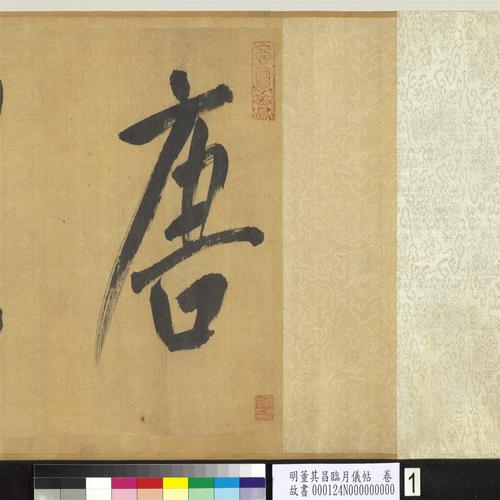 唐
明董其昌臨月儀帖　卷
故書 000124N000000000
1